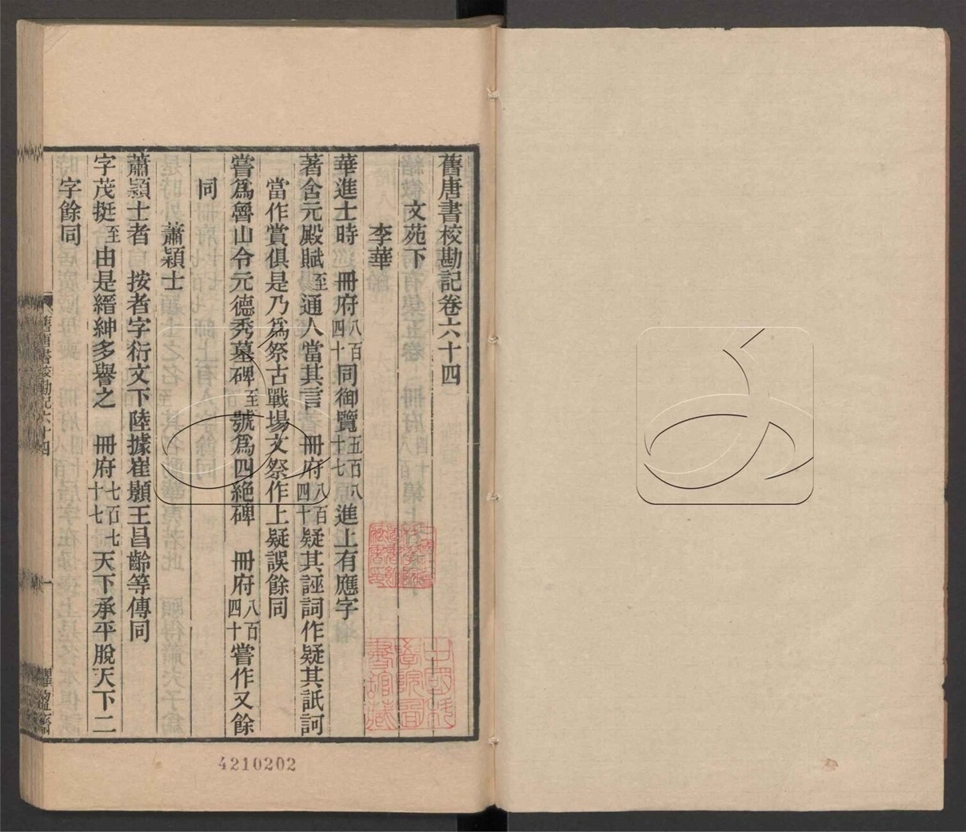 舊唐書校勘記卷六十四
文苑下
李華
華進士時　冊府八百四十同御覽五百八十七進上有應字
著含元殿賦至通人當其言　冊府八百四十疑其誣詞作疑其詆訶
當作賞俱是乃為祭古戰場文祭作上疑誤餘同
嘗為魯山令元德秀墓碑至號為四絕碑　冊府八百四十嘗作又餘
同
蕭穎士
蕭潁士者　按者字衍文下陸據崔顥王昌齡等傳同
字茂挺至由是縉紳多譽之　冊府七百七十七天下承平脫天下二
字餘同
舊唐書校勘記六十四
一
4210202